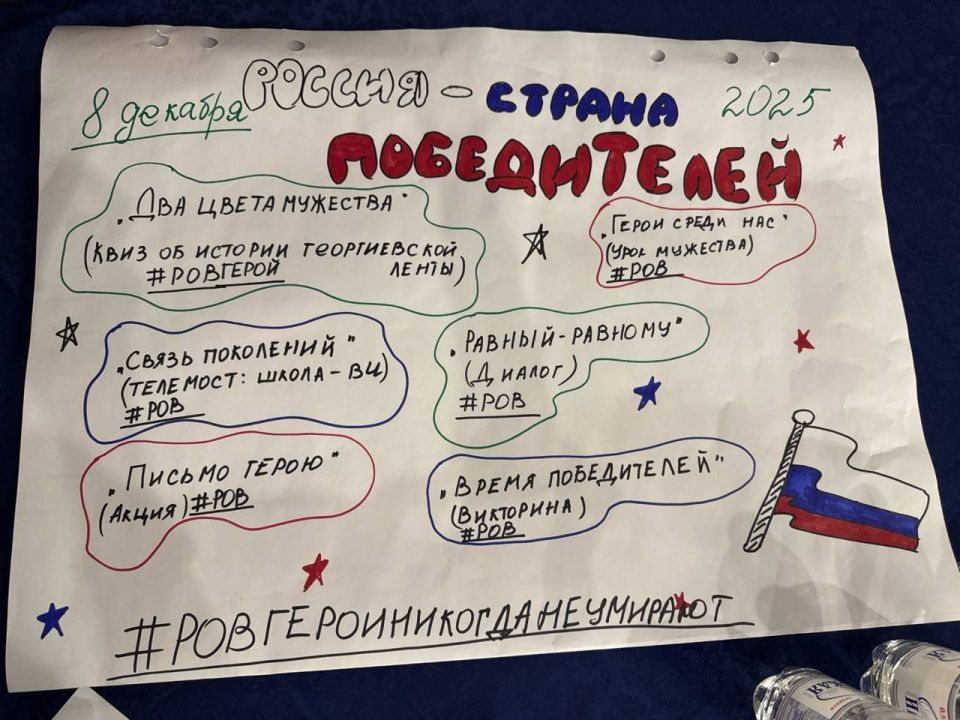 8 декабря
РОССИЯ - СТРАНА
2025
ПОБЕДИТЕЛЕЙ
„ДВА ЦВЕТА МУЖЕСТВА"
(КВИЗ ОБ ИСТОРИИ ГЕОРГИЕВСКОЙ
#РОВГЕРОЙ ЛЕНТЫ)
„ГЕРОИ СРЕДИ НАС"
(УРОК МУЖЕСТВА)
#РОВ
„СВЯЗЬ ПОКОЛЕНИЙ"
(ТЕЛЕМОСТ: ШКОЛА-ВЦ)
#РОВ
„РАВНЫЙ-РАВНОМУ"
(ДИАЛОГ)
#РОВ
„ПИСЬМО ГЕРОЮ"
(АКЦИЯ) #РОВ
„ВРЕМЯ ПОБЕДИТЕЛЕЙ"
(ВИКТОРИНА)
#РОВ
#РОВГЕРОИНИКОГДАНЕУМИРАЮТ